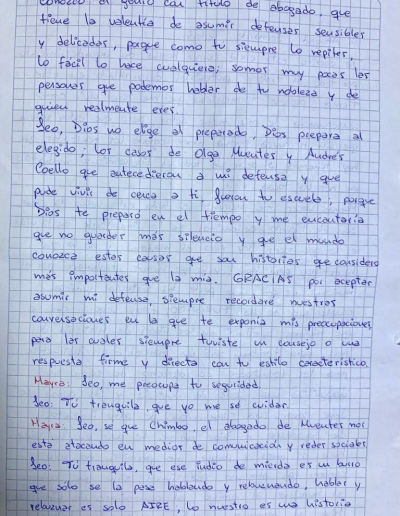 conozco al genio con título de abogado, que
tiene la valentía de asumir defensas sensibles
y delicadas, porque como tu siempre lo repites,
lo fácil lo hace cualquiera; somos muy pocas las
personas que podemos hablar de tu nobleza y de
quien realmente eres.
Leo, Dios no elige al preparado, Dios prepara al
elegido, los casos de Olga Muentes y Andrés
Coello que antecedieron a mi defensa y que
pude vivir de cerca a ti, fueron tu escuela, porque
Dios te preparó en el tiempo y me encantaría
que no guardes más silencio y que el mundo
conozca estas causas que son historias que considero
más importantes que la mía. GRACIAS por aceptar
asumir mi defensa, siempre recordaré nuestras
conversaciones en la que te exponía mis preocupaciones
para las cuales siempre tuviste un consejo o una
respuesta firme y directa con tu estilo característico.
Mayra: Leo, me preocupa tu seguridad.
Leo: Tú tranquila, que yo me sé cuidar.
Mayra: Leo, se que Chimbo, el abogado de Muentes nos
está atacando en medios de comunicación y redes sociales
Leo: Tú tranquila, que ese indio de mierda es un burro
que sólo se la pasa hablando y rebuznando, hablar y
rebuznar es solo AIRE, lo nuestro es una historia